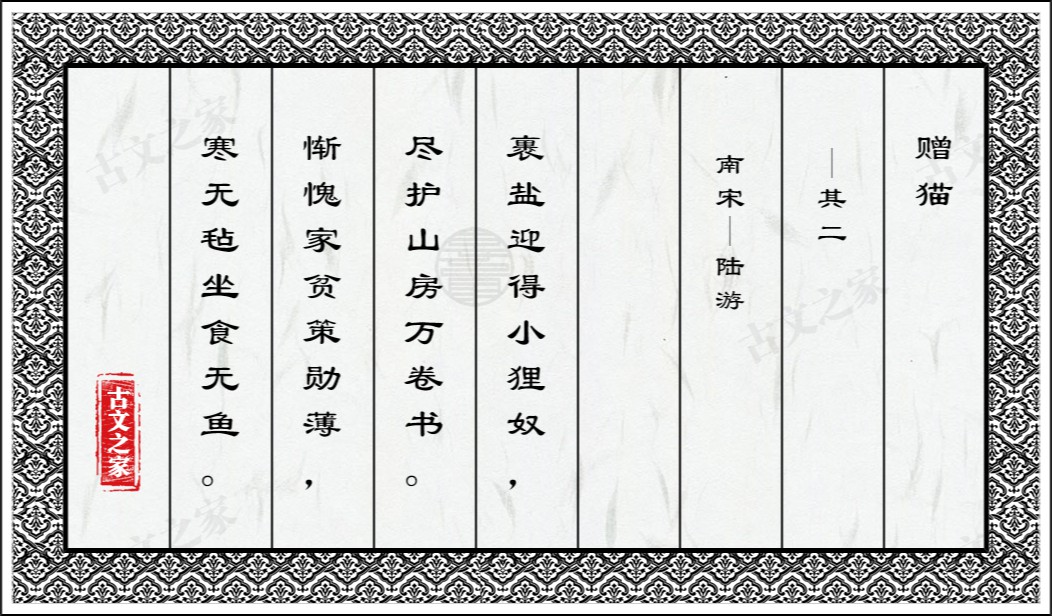 赠猫
—其二
南宋—陆游
裹盐迎得小狸奴，
尽护山房万卷书。
惭愧家贫策勋薄，
寒无毡坐食无鱼。
古文之家
古文之家
古文之家
古文之家